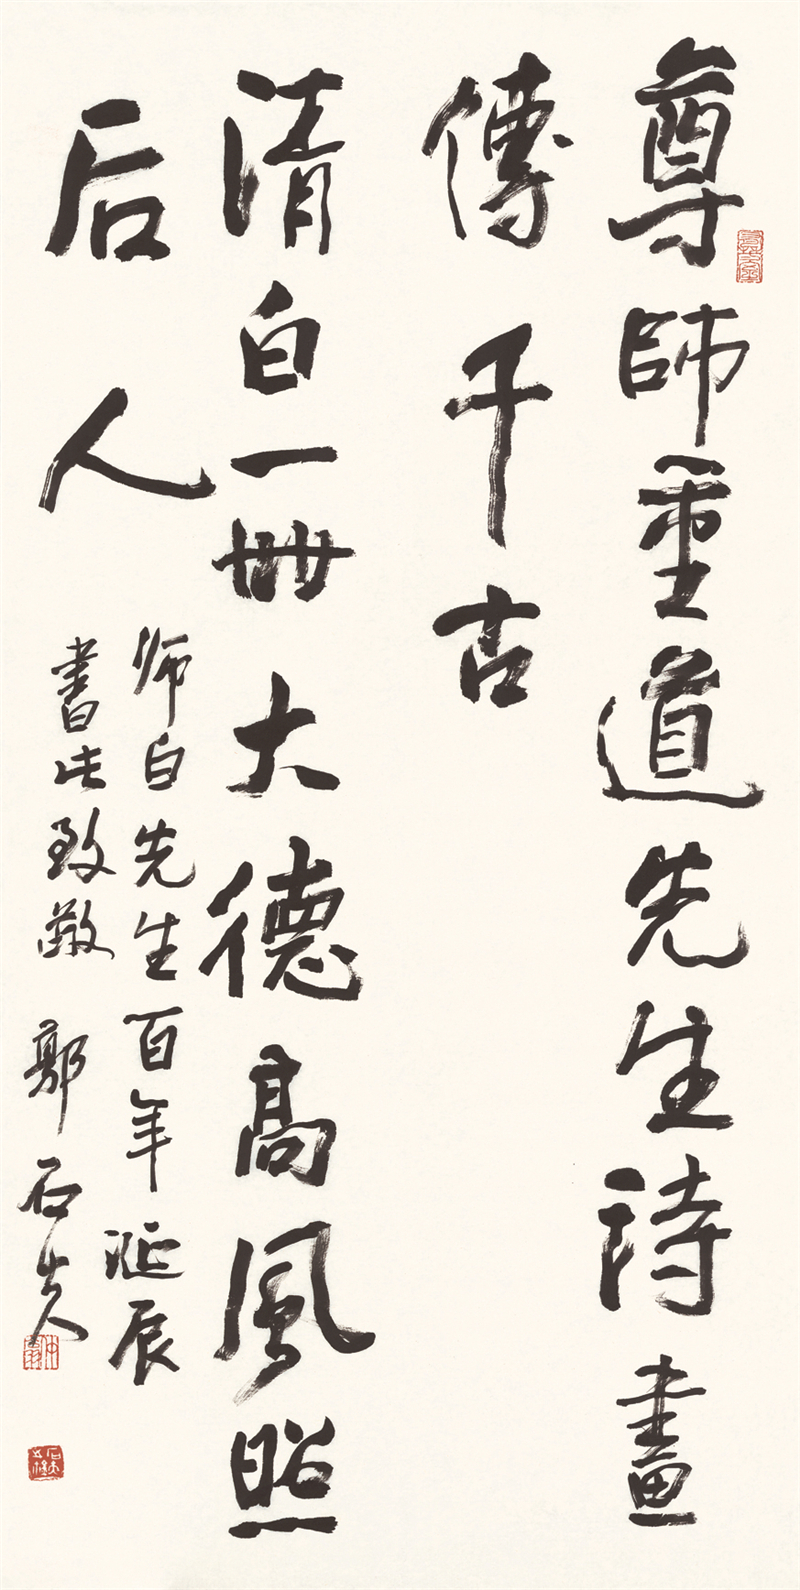 尊師重道先生詩畫
傳千古
清白一冊大德高風照
后人
师白先生百年诞辰
書此致敬 郭石夫